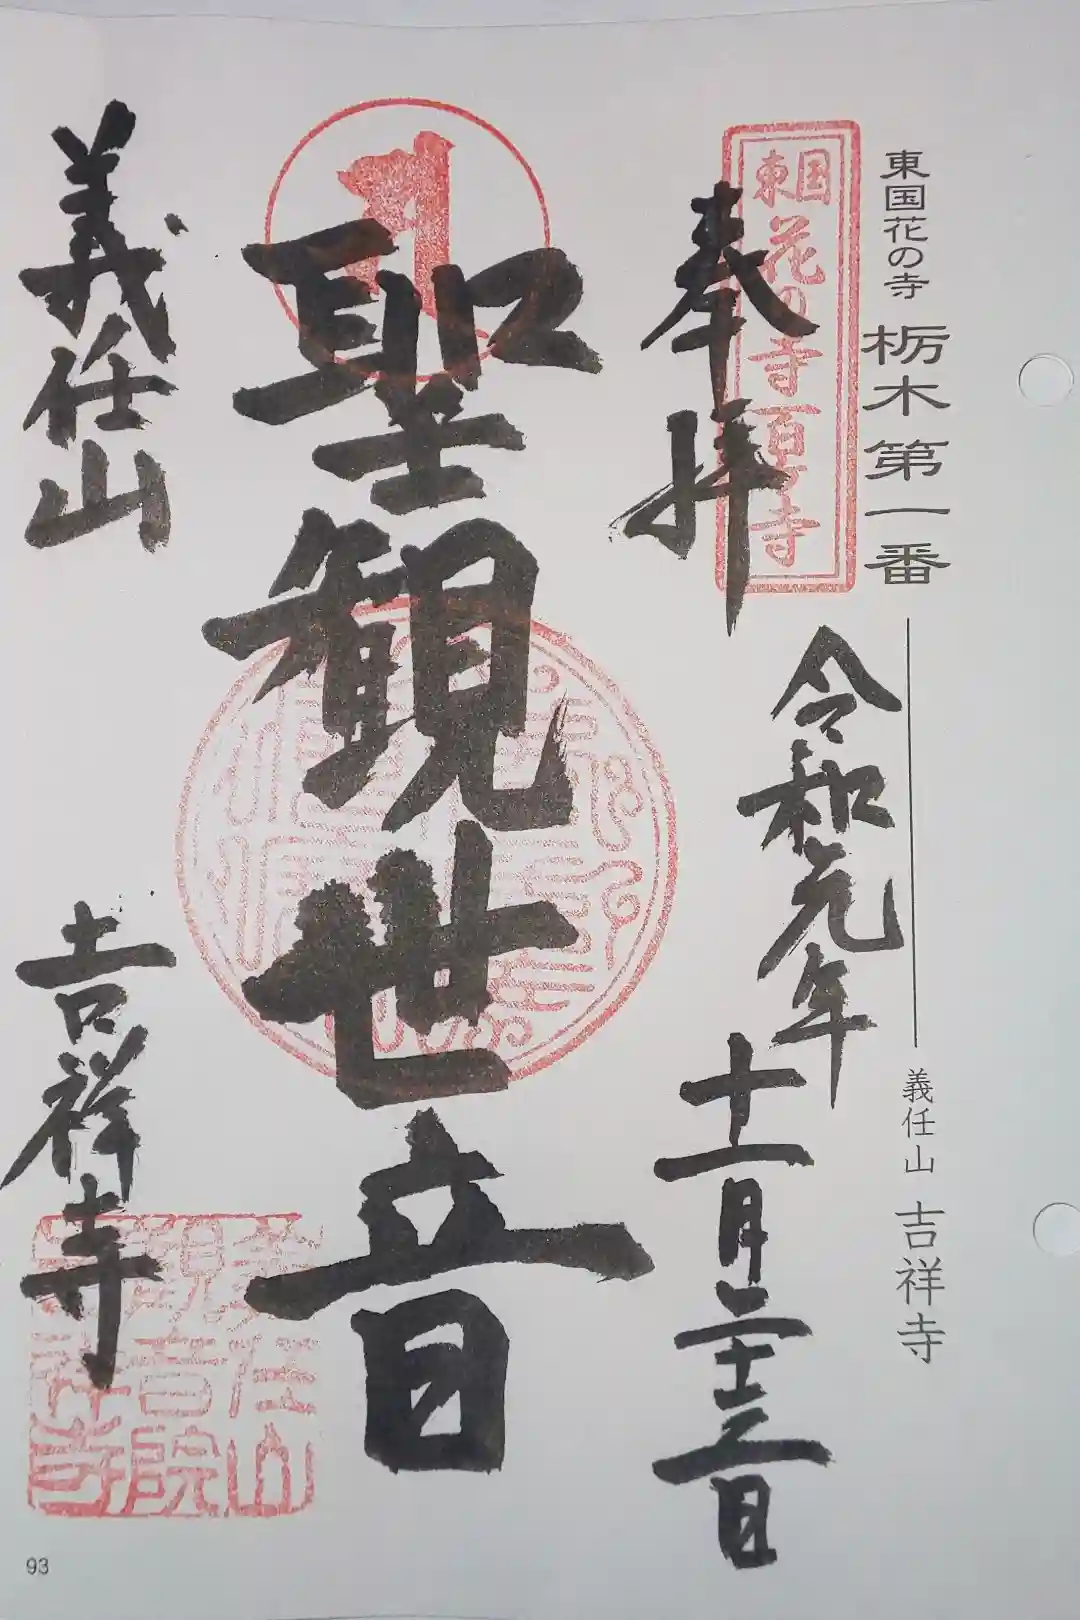 東国花の寺 栃木第一番 義任山 吉祥寺
東国花の寺百ヶ寺
奉拝
令和元年
十一月二十三日
1
聖観世音
義任山
吉祥寺
93